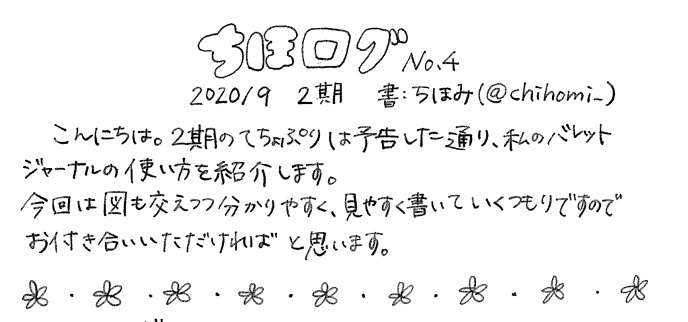 ちほログ No.4
2020/9 2期 書:ちほみ(@chihomi_)
こんにちは。2期のてちょぷりは予告した通り、私のバレット
ジャーナルの使い方を紹介します。
今回は図も交えつつ分かりやすく、見やすく書いていくつもりですので
お付き合いいただければと思います。